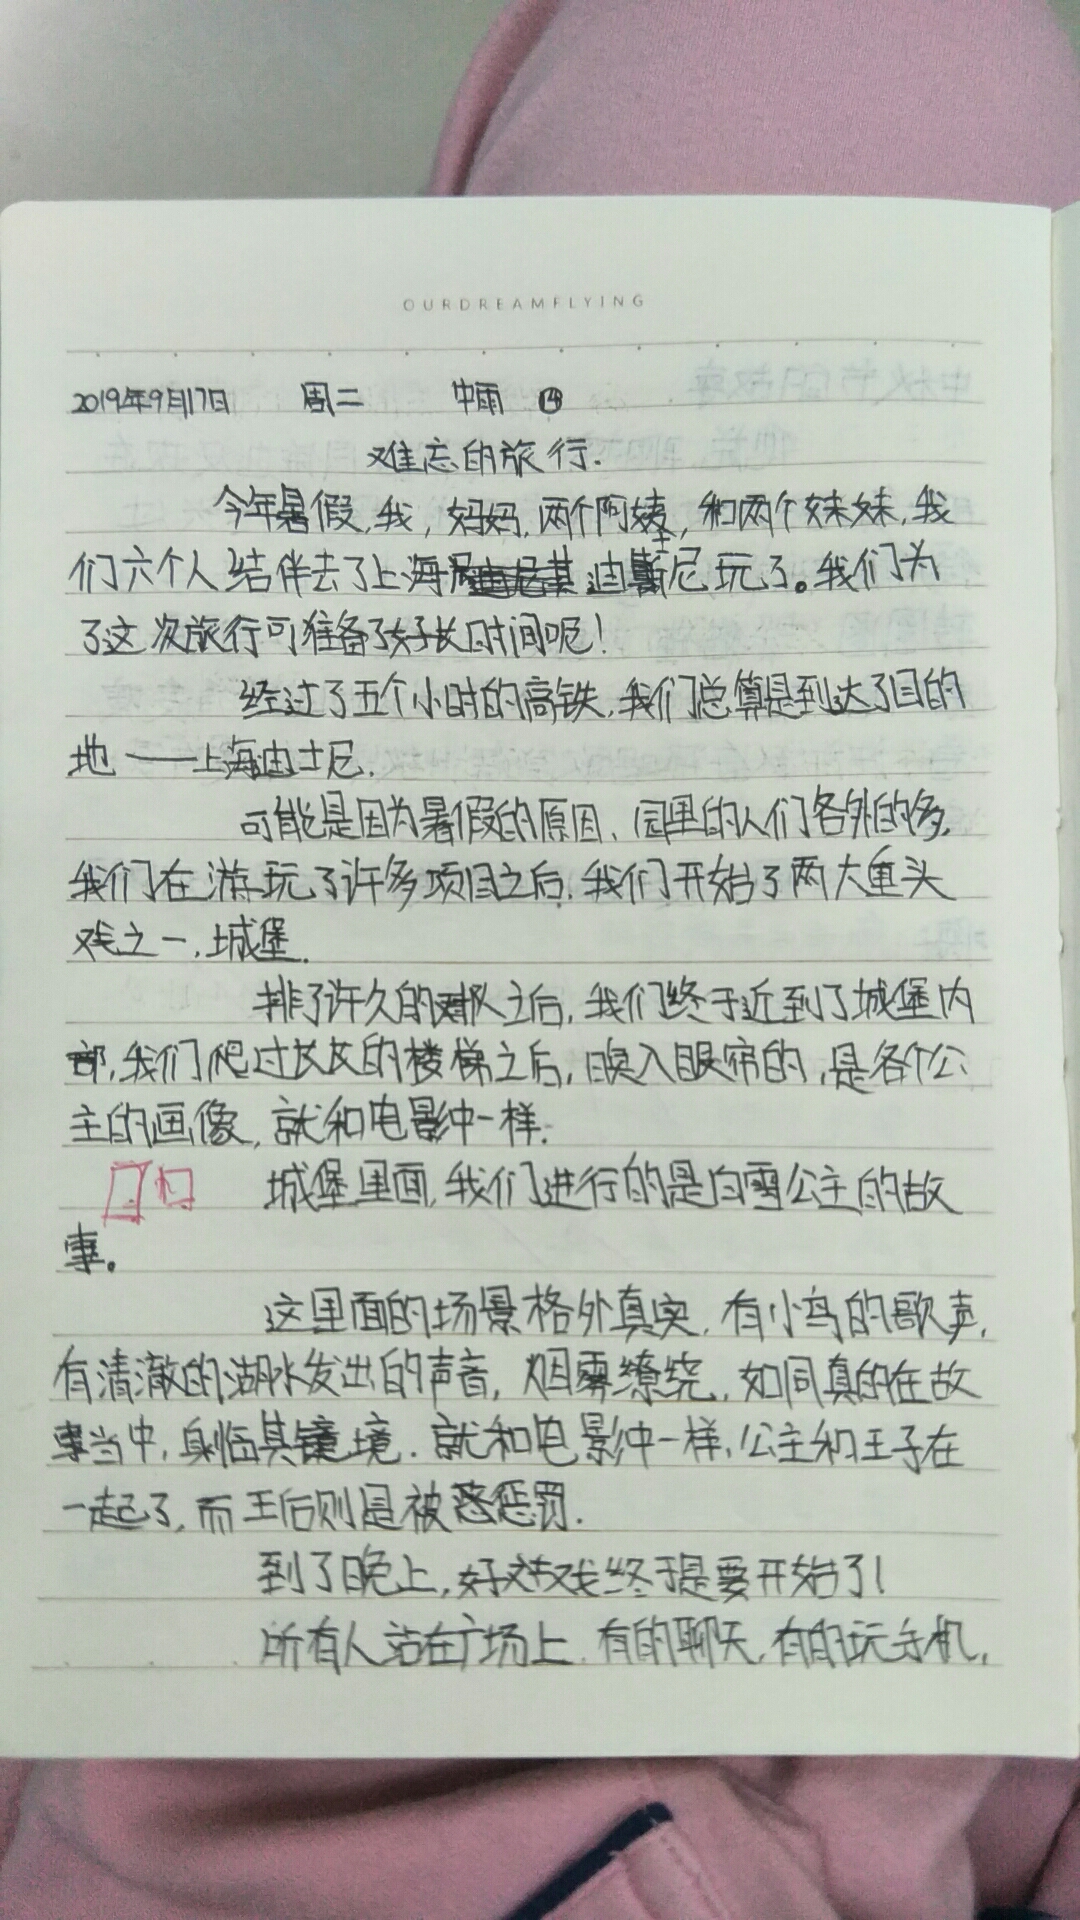 OURDREAMFLYING
2019年9月17日 周二 中雨 ⑭
难忘的旅行.
今年暑假,我,妈妈,两个阿姨,和两个妹妹,我
们六个人结伴去了上海迪斯尼玩了。我们为
了这次旅行可准备了好长时间呢!
经过了五个小时的高铁,我们总算是到达了目的
地——上海迪士尼.
可能是因为暑假的原因、园里的人们各外的多,
我们在游玩了许多项目之后.我们开始了两大重头
戏之一,城堡.
排了许久的队之后,我们终于近到了城堡内
部,我们爬过长长的楼梯之后,映入眼帘的,是各个公
主的画像,就和电影中一样.
城堡里面,我们进行的是白雪公主的故
事。
这里面的场景格外真实,有小鸟的歌声,
有清澈的湖水发出的声音,烟雾缭绕,如同真的在故
事当中,身临其境.就和电影中一样,公主和王子在
一起了,而王后则是被惩罚.
到了晚上,好戏终于是要开始了!
所有人站在广场上.有的聊天,有的玩手机,